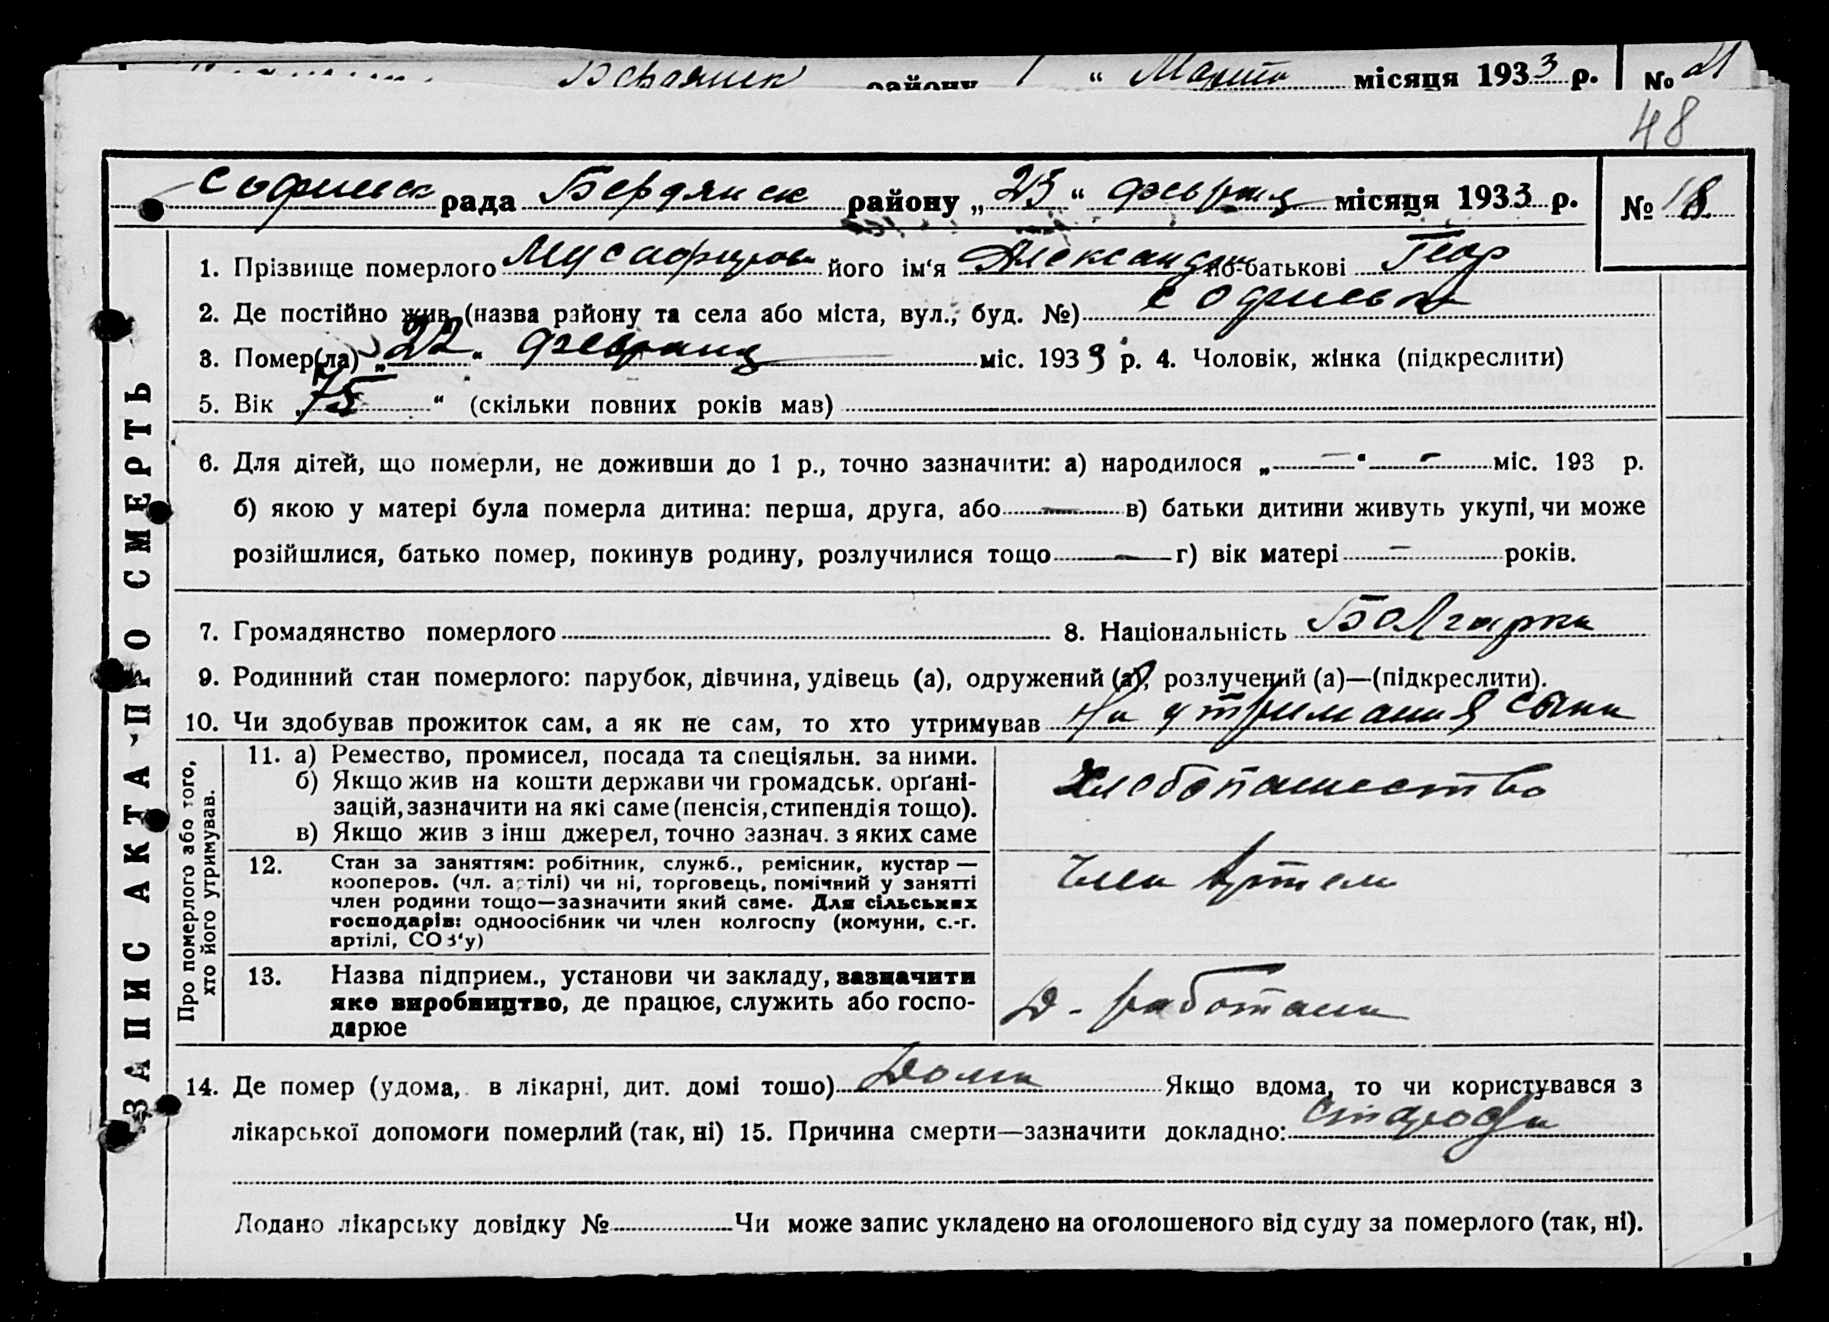 Бердянск району " Марта місяця 1933 р. № 21
48
Софиевск рада Бердянск району „23" февраля місяця 1933 р. № 18
1. Прізвище померлого Мусафирова його ім'я Александра по-батькові Геор
2. Де постійно жив (назва району та села або міста, вул., буд. №) с Софиевка
3. Помер(ла) „22" февраля міс. 1933 р. 4. Чоловік, жінка (підкреслити)
5. Вік „75" (скільки повних років мав)
6. Для дітей, що померли, не доживши до 1 р., точно зазначити: а) народилося „—" — міс. 193 р.
б) якою у матері була померла дитина: перша, друга, або — в) батьки дитини живуть укупі, чи може
розійшлися, батько помер, покинув родину, розлучилися тощо — г) вік матері — років.
7. Громадянство померлого 8. Національність Болгарка
9. Родинний стан померлого: парубок, дівчина, удівець (а), одружений (а), розлучений (а)—(підкреслити).
10. Чи здобував прожиток сам, а як не сам, то хто утримував На утримания сына
ЗАПИС АКТА ПРО СМЕРТЬ
Про померлого або того, хто його утримував.
11. а) Ремество, промисел, посада та спеціяльн. за ними.
б) Якщо жив на кошти держави чи громадськ. орґані-
зацій, зазначити на які саме (пенсія, стипендія тощо).
в) Якщо жив з інш джерел, точно зазнач. з яких саме
Хлебопашество
12. Стан за заняттям: робітник, служб., ремісник, кустар —
кооперов. (чл. артілі) чи ні, торговець, помічний у занятті
член родини тощо—зазначити який саме. Для сільських
господарів: одноосібник чи член колгоспу (комуни, с.-г.
артілі, СОЗ'у)
член Артели
13. Назва підприєм., установи чи закладу, зазначити
яке виробництво, де працює, служить або госпо-
дарює
14. Де помер (удома, в лікарні, дит. домі тошо) Дома Якщо вдома, то чи користувався з
лікарської допомоги померлий (так, ні) 15. Причина смерти—зазначити докладно:
Додано лікарську довідку № Чи може запис укладено на оголошеного від суду за померлого (так, ні).